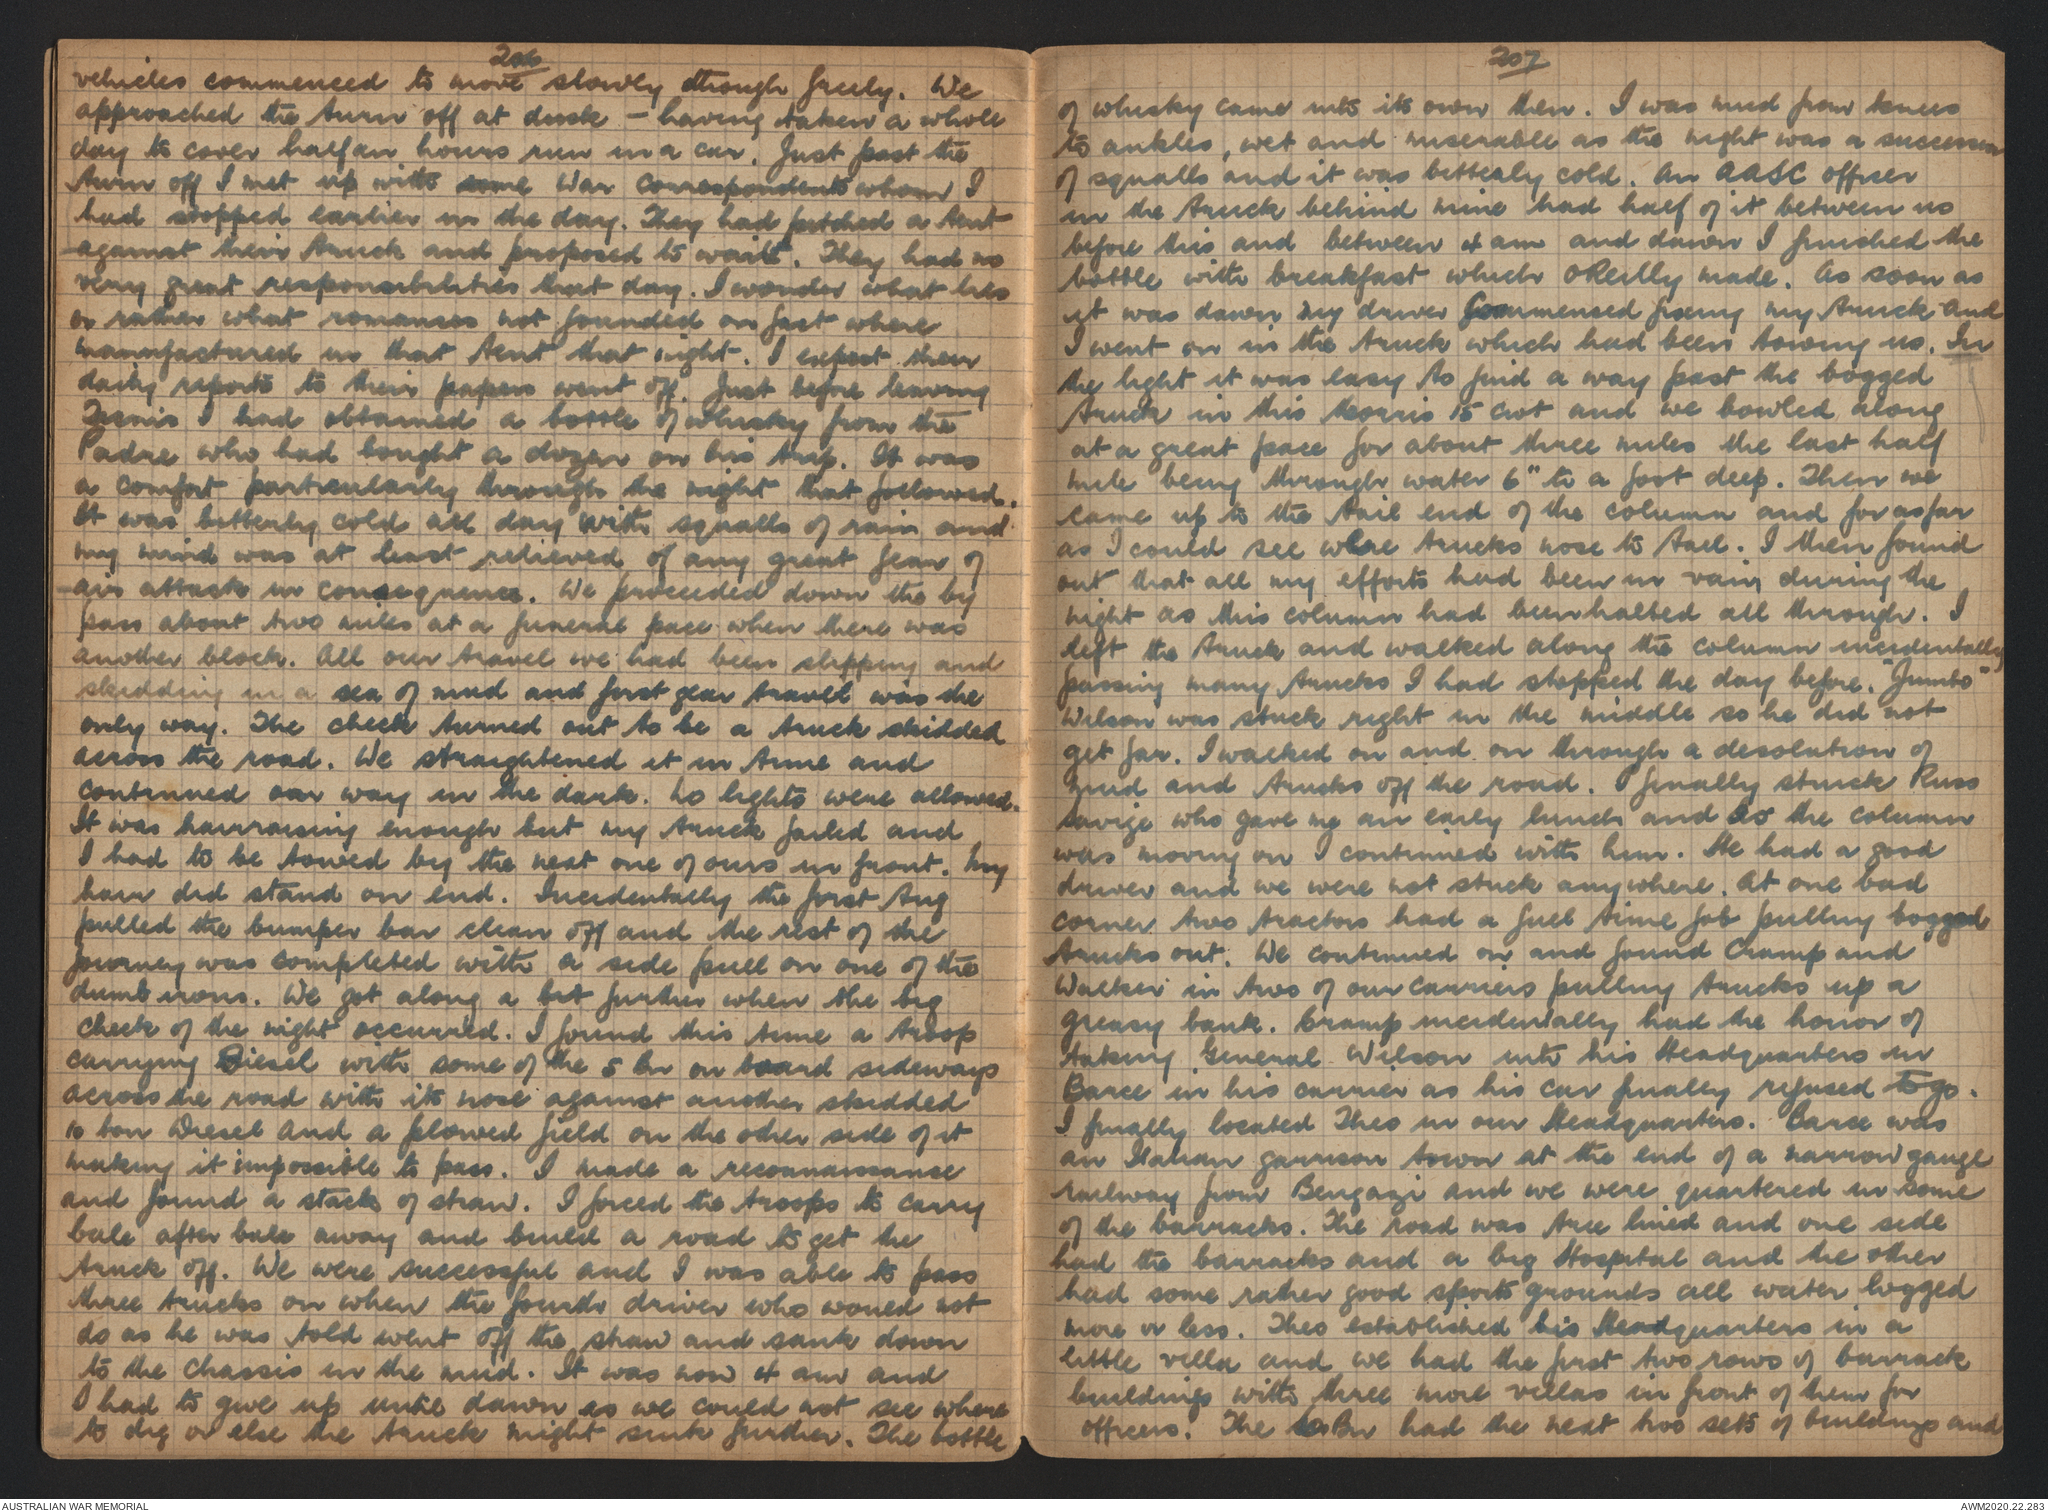 206
vehicles commenced to move slowly though freely. We
approached the turn off at dusk - having taken a whole
day to cover half an hours run in a car. Just past the
turn off I met up with some War correspondents whom I
had stopped earlier in the day. They had pitched a tent
against their truck and proposed to wait. They had no
very great responsibilities that day. I wonder what lies
or rather what romances not founded on fact where
mannfactured in that tent that night. I expect their
daily reports to their papers went off. Just before leaving
I had obtained a bottle of whisky from the
Padre who had bought a dozen on his trip. It was
a comfort particularly through the night that followed.
It was bitterly cold all day with squalls of rain and
my mind was at least relieved of any great fear of
air attack in consequence. We proceeded down the by
pass about two miles at a funeral pace when there was
another block. All our travel we had been slipping and
skidding in a sea of mud and first gear travel was the
only way. The check turned out to be a truck skidded
across the road. We straightened it in time and
continued our way in the dark. No lights were allowed.
It was harrassing enough but my truck failed and
I had to be towed by the next one of ours in front. My
hair did stand on end. Incidentally the first tug
pulled the bumper bar clean off and the rest of the
journey was completed with a side pull on one of the
dumb irons. We got along a bit further when the big
check of the night occurred. I found this time a troop
carrying Diesel with some of the 5 Bn on board sideways
across the road with its nose against another skidded
10 ton Diesel and a plowed field on the other side of it
making it impossible to pass. I made a reconnaissance
and found a stack of straw. I forced the troops to carry
bale after bale away and build a road to get the
truck off. We were successful and I was able to pass
three trucks on when the fourth driver who would not
do as he was told went off the straw and sank down
to the chassis in the mud. It was now 4 am and
I had to give up until dawn as we could not see where
to dig or else the truck might sink further. The bottle
207
of whisky came into its own then. I was mud from knees
to ankles, wet and miserable as the night was a succession
of squalls and it was bitterly cold. An AASC officer
in the truck behind mine had half of it between us
before this and between 4 am and dawn I finished the
bottle with breakfast which OReilly made. As soon as
it was dawn my driver commenced fixing my truck and
I went on in the truck which had been towing us. In
the light it was easy to find a way past the bogged
truck in this Morris 15 cwt and we bowled along
at a great pace for about three miles the last half
mile being through water 6" to a foot deep. Then we
came up to the tail end of the column and for as far
as I could see were trucks nose to tail. I then found
out that all my efforts had been in vain during the
night as this column had been halted all through. I
left the truck and walked along the column incidentally
passing many trucks I had stopped the day before. "Jumbo"
Wilson was stuck right in the middle so he did not
get far. I walked on and on through a desolation of
mud and trucks off the road. I finally struck Russ
Savige who gave me an early lunch and as the column
was moving on I continued with him. He had a good
driver and we were not stuck anywhere. At one bad
corner two tractors had a full time job pulling bogged
trucks out. We continued on and found Cramp and
Walker in two of our carriers pulling trucks up a
greasy bank. Cramp incidentally had the honor of
taking General Wilson into his Headquarters in
Barce in his carrier as his car finally refused to go.
I finally located Theo in our Headquarters. Barce was
an Italian garrison town at the end of a narrow gauge
railway from Bengazi and we were quartered in some
of the barracks. The road was tree lined and one side
had the barracks and a big Hospital and the other
had some rather good sports grounds all water logged
more or less. Theo established his Headquarters in a
little villa and we had the first two rows of barrack
buildings with three more villas in front of them for
officers. The Bn had the next two sets of buildings and
AUSTRALIAN WAR MEMORIAL
AWM2020.22.283